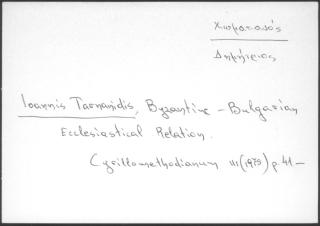 Χωματιανός
Δημήτριος
Ioannis Tarnanidis, Byzantine - Bulgarian
Ecclesiastical Relation.
Cyrillomethodianum III (1975) p. 41 —